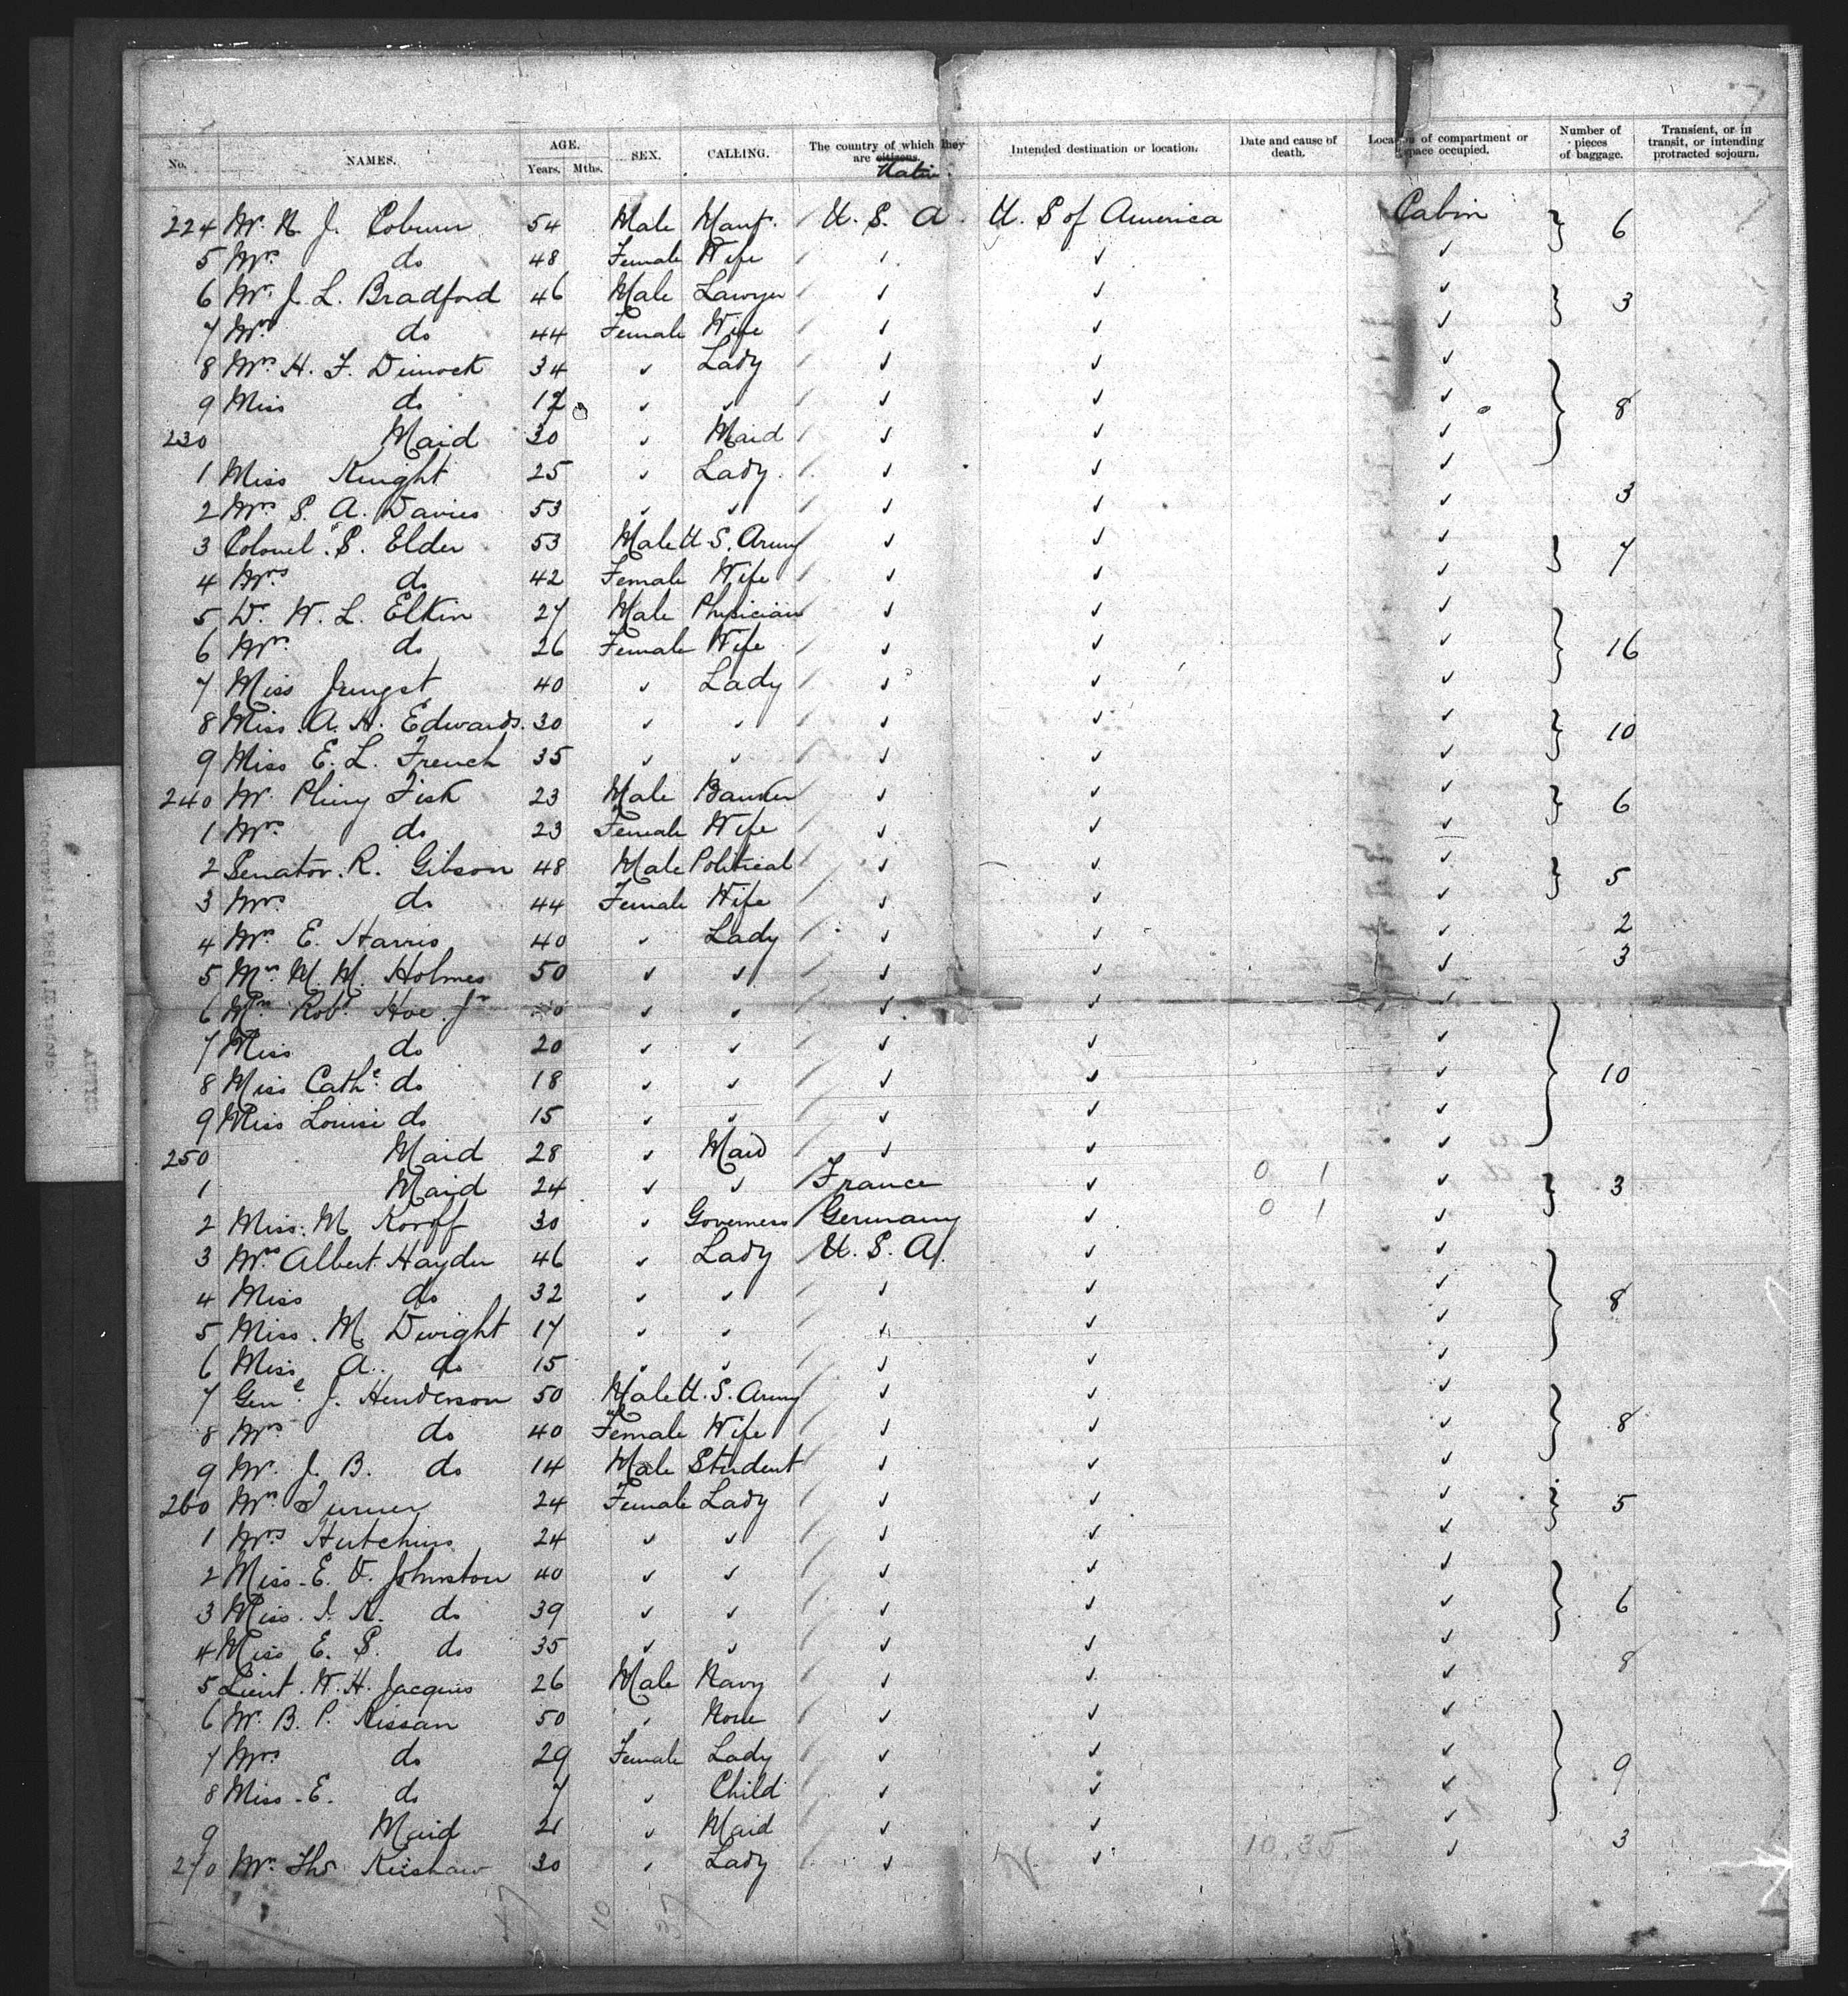 No. NAMES. AGE. Years. Mths. SEX. CALLING. The country of which they are citizens. Native Intended destination or location. Date and cause of death. Location of compartment or space occupied. Number of pieces of baggage. Transient, or in transit, or intending protracted sojourn.
224 Mr. N. J. Coburn 54 Male Mant. U. S. A. U. S of America Cabin } 6
5 Mrs do 48 Female Wife ✓ ✓ ✓
6 Mr. J. L. Bradford 46 Male Lawyer ✓ ✓ ✓ } 3
7 Mrs do 44 Female Wife ✓ ✓ ✓
8 Mrs H. F. Dimock 34 ✓ Lady ✓ ✓ ✓
9 Miss do 12 ✓ ✓ ✓ ✓ ✓ } 8
230 Maid 30 ✓ Maid ✓ ✓ ✓
1 Miss Knight 25 ✓ Lady ✓ ✓ ✓
2 Mrs S. A. Davies 53 ✓ ✓ ✓ ✓ ✓ 3
3 Colonel S. Elder 53 Male U. S. Army ✓ ✓ ✓ } 7
4 Mrs do 42 Female Wife ✓ ✓ ✓
5 Dr. W. L. Elkin 27 Male Physician ✓ ✓ ✓
6 Mrs do 26 Female Wife ✓ ✓ ✓ } 16
7 Miss Jungst 40 ✓ Lady ✓ ✓ ✓
8 Miss A. H. Edwards 30 ✓ ✓ ✓ ✓ ✓ } 10
9 Miss E. L. French 35 ✓ ✓ ✓ ✓ ✓
240 Mr. Pliny Fisk 23 Male Banker ✓ ✓ ✓ } 6
1 Mrs do 23 Female Wife ✓ ✓ ✓
2 Senator R. Gibson 48 Male Political ✓ ✓ ✓ } 5
3 Mrs do 44 Female Wife ✓ ✓ ✓
4 Mrs E. Harris 40 ✓ Lady ✓ ✓ ✓ 2
5 Mrs M. M. Holmes 50 ✓ ✓ ✓ ✓ ✓ 3
6 Mrs Robt Hoe Jr ✓ ✓ ✓ ✓ ✓
7 Miss do 20 ✓ ✓ ✓ ✓ ✓
8 Miss Cathe do 18 ✓ ✓ ✓ ✓ ✓ } 10
9 Miss Louise do 15 ✓ ✓ ✓ ✓ ✓
250 Maid 28 ✓ Maid ✓ ✓ ✓
1 Maid 24 ✓ ✓ France ✓ 0 1 ✓ } 3
2 Miss M Koroff 30 ✓ Governess Germany ✓ 0 1 ✓
3 Mrs Albert Hayden 46 ✓ Lady U. S. A. ✓ ✓
4 Miss do 32 ✓ ✓ ✓ ✓ ✓ } 8
5 Miss M Dwight 17 ✓ ✓ ✓ ✓ ✓
6 Miss A. do 15 ✓ ✓ ✓ ✓ ✓
7 Genl J. Henderson 50 Male U. S. Army ✓ ✓ ✓
8 Mrs do 40 Female Wife ✓ ✓ ✓ } 8
9 Mr. J. B. do 14 Male Student ✓ ✓ ✓
260 Mrs Turner 24 Female Lady ✓ ✓ ✓ } 5
1 Mrs Hutchins 24 ✓ ✓ ✓ ✓ ✓
2 Miss E. V. Johnston 40 ✓ ✓ ✓ ✓ ✓
3 Miss do 39 ✓ ✓ ✓ ✓ ✓ } 6
4 Miss E. S. do 35 ✓ ✓ ✓ ✓ ✓
5 Lieut. W. H. Jacques 26 Male Navy ✓ ✓ ✓ 8
6 Mr. B. P. Kissan 50 ✓ None ✓ ✓ ✓
7 Mrs do 29 Female Lady ✓ ✓ ✓
8 Miss E. do 7 ✓ Child ✓ ✓ ✓ } 9
9 Maid 21 ✓ Maid ✓ ✓ ✓
270 Mrs Thos Kershaw 30 ✓ Lady ✓ ✓ 10.35 ✓ 3
47 10 37